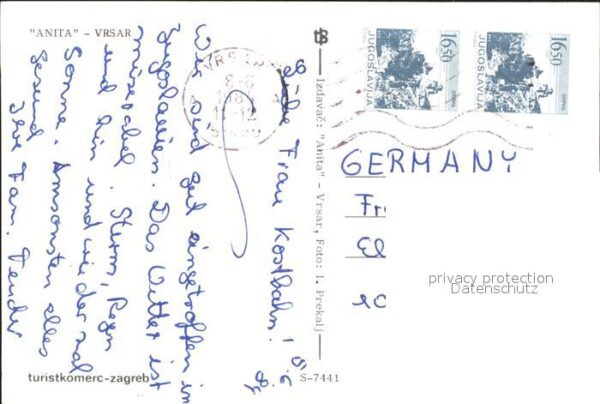 "ANITA" - VRSAR
Liebe Frau Kostbahn!
Wir sind gut angetroffen in
Jugoslawien. Das Wetter ist
miserabel. Sturm, Regen
und hin und wieder mal
Sonne. Ansonsten alles
gesund
Ihre Fam.
turistkomerc-zagreb
Izdavač: "Anita" - Vrsar, Foto: I. Prekalj
S-7441
VRSAR
JUGOSLAVIJA
16.50
JUGOSLAVIJA
16.50
GERMANY
Fr
El
privacy protection
Datenschutz